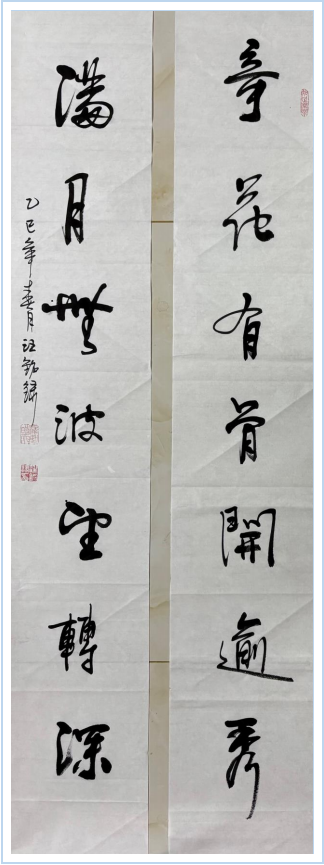 奇花有骨開逾秀
滿月無波望轉深
乙巳年春月汪